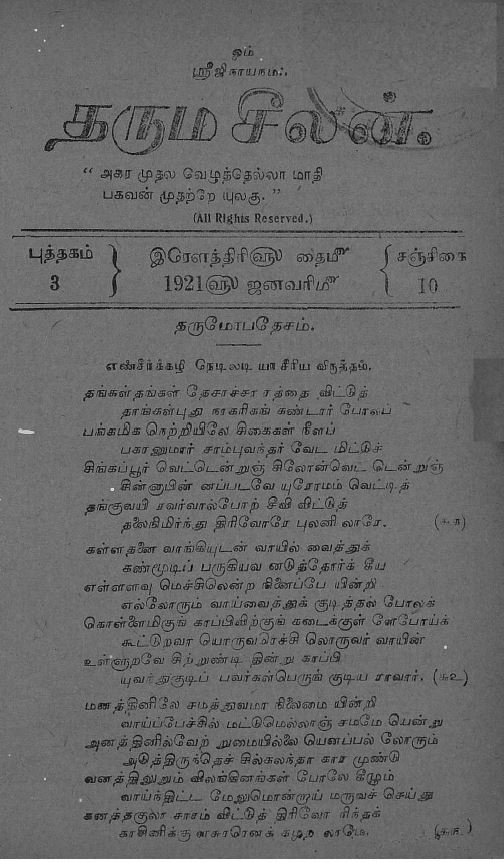 ஓம்
ஸ்ரீஜிநாயநம:.
தரும சீலன்.
“ அகர முதல வெழுத்தெல்லா மாதி
பகவன் முதற்றே யுலகு. ”
(All Rights Reserved.)
புத்தகம் 3
இரௌத்திரி௵ தைமீ
1921௵ ஜனவரிமீ
சஞ்சிகை 10
தருமோபதேசம்.
எண்சீர்க்கழி நெடிலடி யாசிரிய விருத்தம்.
தங்கள்தங்கள் தேசாச்சா ரத்தை விட்டுத்
தாங்கள்புது நாகரிகங் கண்டார் போலப்
பங்கமிக நெற்றியிலே சிகைகள் நீளப்
பகரனுமார் சாம்புவந்தர் வேட மிட்டுச்
சிங்கப்பூர் வெட்டென்றுஞ் சிலோன்வெட் டென்றுஞ்
சின்னுபின் னப்படவே யுரோமம் வெட்டித்
தங்குவயி சவர்வால்போற் சீவி விட்டுத்
தலைநிமிர்ந்து திரிவோரே புலனி லாரே. (௬௧)
கள்ளதனை வாங்கியுடன் வாயில் வைத்துக்
கண்மூடிப் பருகியவ னடுத்தோர்க் கீய
எள்ளளவு மெச்சிலென்ற நினைப்பே யின்றி
எல்லோரும் வாய்வைத்துக் குடித்தல் போலக்
கொள்ளைமிகுங் காப்பிவிற்குங் கடைக்குள் ளேபோய்க்
கூட்டுறவா யொருவரெச்சி லொருவர் வாயின்
உள்ளுறவே சிற்றுண்டி தின்று காப்பி
யுவந்துகுடிப் பவர்கள்பெருங் குடிய ராவார். (௬௨)
மனத்தினிலே சமத்துவமா நிலைமை யின்றி
வாய்ப்பேச்சில் மட்டுமெல்லாஞ் சமமே யென்று
அனத்தினில்வேற் றுமையில்லை யெனப்பல் லோரும்
அடுத்திருந்தெச் சில்கலந்தா கார முண்டு
வனத்திலுறும் விலங்கினங்கள் போலே கீழும்
வாய்ந்திட்ட மேலுமொன்றாய் மருவச் செய்து
கனத்தகுலா சாசம் விட்டுத் திரிவோ ரிந்தக்
காசினிக்கு லாமே. (௬௩)